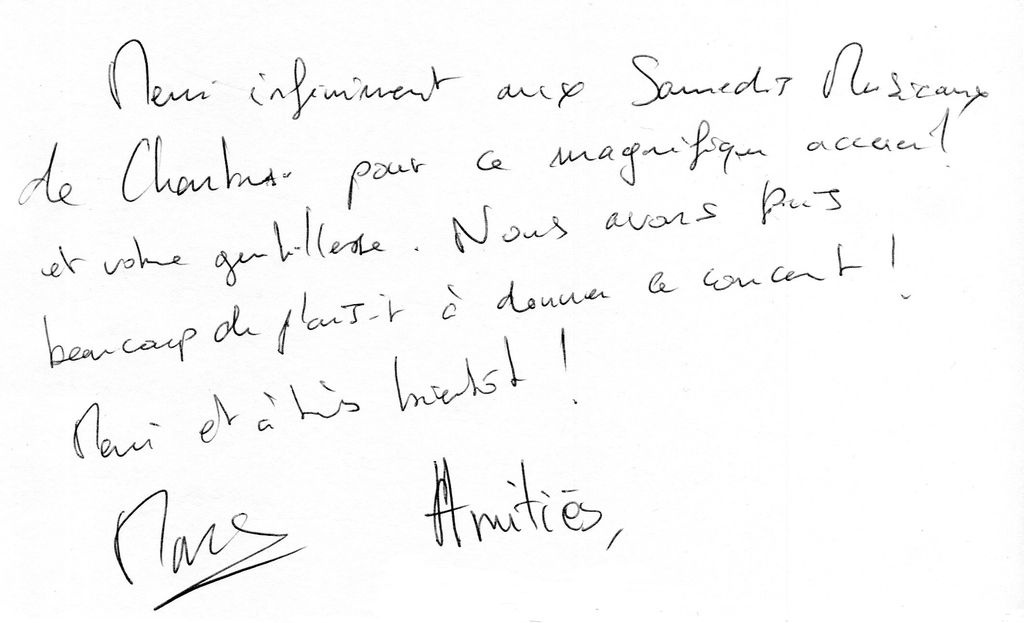 Merci infiniment aux Samedis Musicaux
de Chartres pour ce magnifique accueil
et votre gentillesse. Nous avons pris
beaucoup de plaisir à donner ce concert !
Merci et à très bientôt !
Amitiés,
Marc